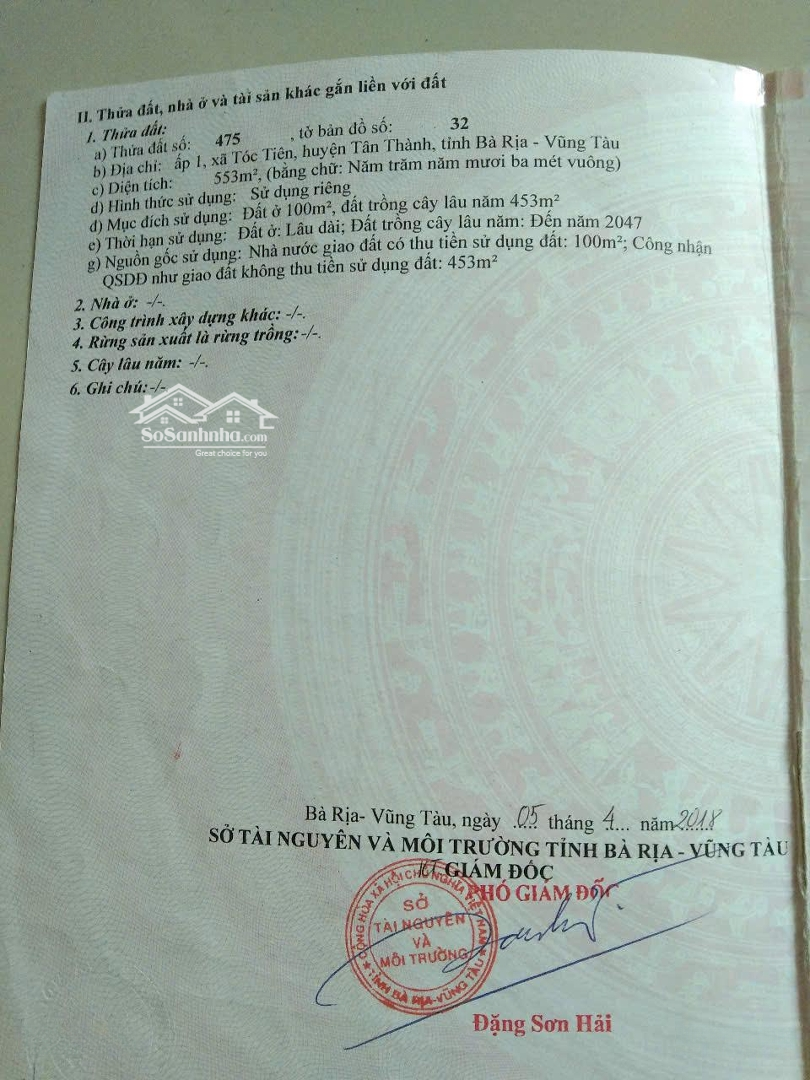 II. Thửa đất, nhà ở và tài sản khác gắn liền với đất
1. Thửa đất:
a) Thửa đất số: 475 , tờ bản đồ số: 32
b) Địa chỉ: ấp 1, xã Tóc Tiên, huyện Tân Thành, tỉnh Bà Rịa - Vũng Tàu
c) Diện tích: 553m², (bằng chữ: Năm trăm năm mươi ba mét vuông)
d) Hình thức sử dụng: Sử dụng riêng
đ) Mục đích sử dụng: Đất ở 100m², đất trồng cây lâu năm 453m²
e) Thời hạn sử dụng: Đất ở: Lâu dài; Đất trồng cây lâu năm: Đến năm 2047
g) Nguồn gốc sử dụng: Nhà nước giao đất có thu tiền sử dụng đất: 100m²; Công nhận
QSDĐ như giao đất không thu tiền sử dụng đất: 453m²
2. Nhà ở: -/-.
3. Công trình xây dựng khác: -/-.
4. Rừng sản xuất là rừng trồng: -/-.
5. Cây lâu năm: -/-.
6. Ghi chú: -/-
SoSanhnha.com
Great choice for you
Bà Rịa- Vũng Tàu, ngày 05 tháng 4 năm 2018
SỞ TÀI NGUYÊN VÀ MÔI TRƯỜNG TỈNH BÀ RỊA - VŨNG TÀU
KT GIÁM ĐỐC
PHÓ GIÁM ĐỐC
CỘNG HÒA XÃ HỘI CHỦ NGHĨA VIỆT NAM
SỞ
TÀI NGUYÊN
VÀ
MÔI TRƯỜNG
TỈNH BÀ RỊA-VŨNG TÀU
Đặng Sơn Hải